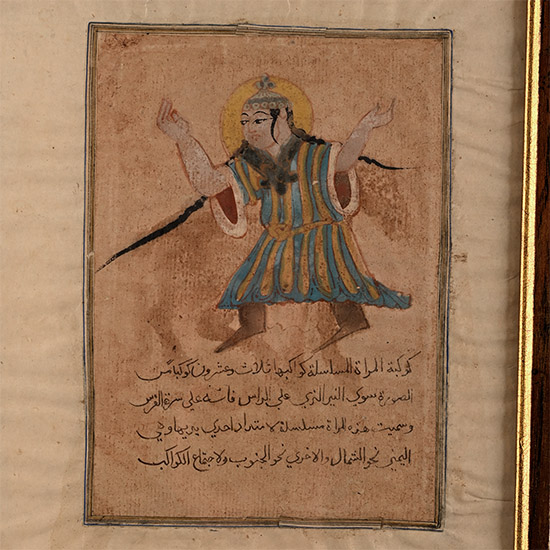 كوكبة المراة المسلسلة كواكبها ثلاث وعشرون كوكبا من
الصورة سوى النير الذي على الراس فانه على سرة الفرس
وسميت هذه المراة مسلسلة لامتداد احدي يديها وهي
اليمنى نحو الشمال والاخرى نحو الجنوب ولاجتماع الكواكب